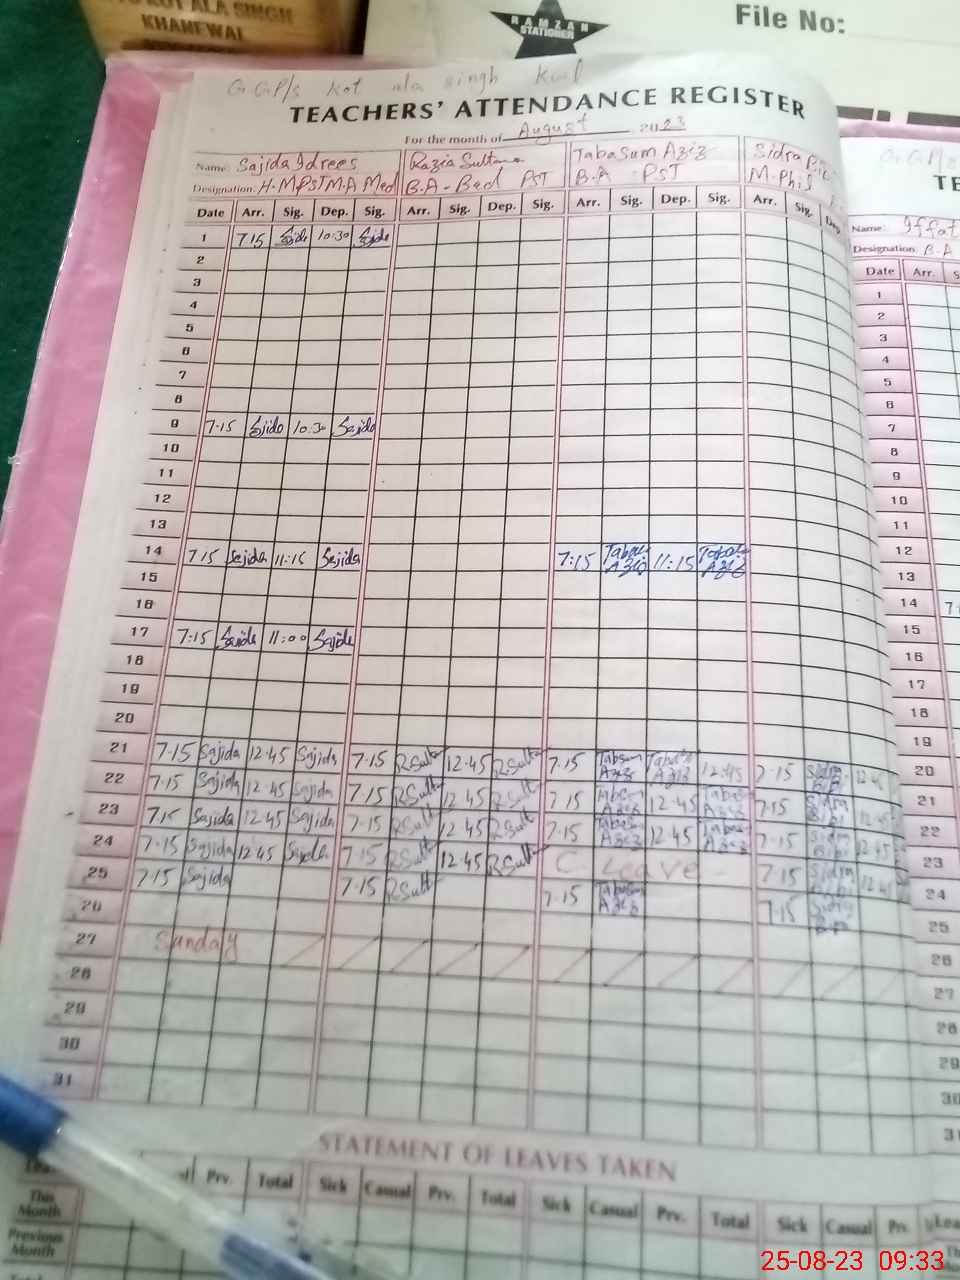 KOT ALA SINGH
KHANEWAL
RAMZAN
STATIONER
File No:
G.G.P/s kot ala singh kwl
TEACHERS' ATTENDANCE REGISTER
For the month of August 2023
Name: Sajida Idrees Razia Sultana Tabasum Aziz Sidra
Designation: H.M PST M.A Med B.A - Bed PST B.A PST M.Phil
Date Arr. Sig. Dep. Sig. Arr. Sig. Dep. Sig. Arr. Sig. Dep. Sig. Arr. Sig. Dep.
1 7.15 Sajida 10:30 Sajida
2
3
4
5
6
7
8
9 7.15 Sajida 10:30 Sajida
10
11
12
13
14 7.15 Sajida 11:15 Sajida 7:15 Tabasum Aziz 11:15 Tabasum Aziz
15
16
17 7:15 Sajida 11:00 Sajida
18
19
20
21 7.15 Sajida 12.45 Sajida 7.15 RSultana 12.45 RSultana 7.15 Tabsum Aziz Tabasum Aziz 12:45 7.15 Sidra Bibi 12.45
22 7.15 Sajida 12.45 Sajida 7.15 RSultana 12.45 RSultana 7.15 Tabsum Aziz 12.45 Tabasum Aziz 7.15 Sidra Bibi 12.45
23 7.15 Sajida 12.45 Sajida 7.15 RSultana 12.45 RSultana 7.15 Tabasum Aziz 12.45 Tabasum Aziz 7.15 Sidra Bibi 12.45
24 7.15 Sajida 12.45 Sajida 7.15 RSultana 12.45 RSultana C. Leave 7.15 Sidra Bibi 12.45
25 7.15 Sajida 7.15 RSultana 7.15 Tabasum Aziz 7.15 Sidra Bibi
26
27 Sunday
28
29
30
31
STATEMENT OF LEAVES TAKEN
Prv. Total Sick Casual Prv. Total Sick Casual Prv. Total Sick Casual Prv.
This Month
Previous Month
TE
Name: Iffat
Designation: B.A
Date Arr.
1
2
3
4
5
6
7
8
9
10
11
12
13
14 7
15
16
17
18
19
20
21
22
23
24
25
26
27
28
29
30
31
25-08-23 09:33